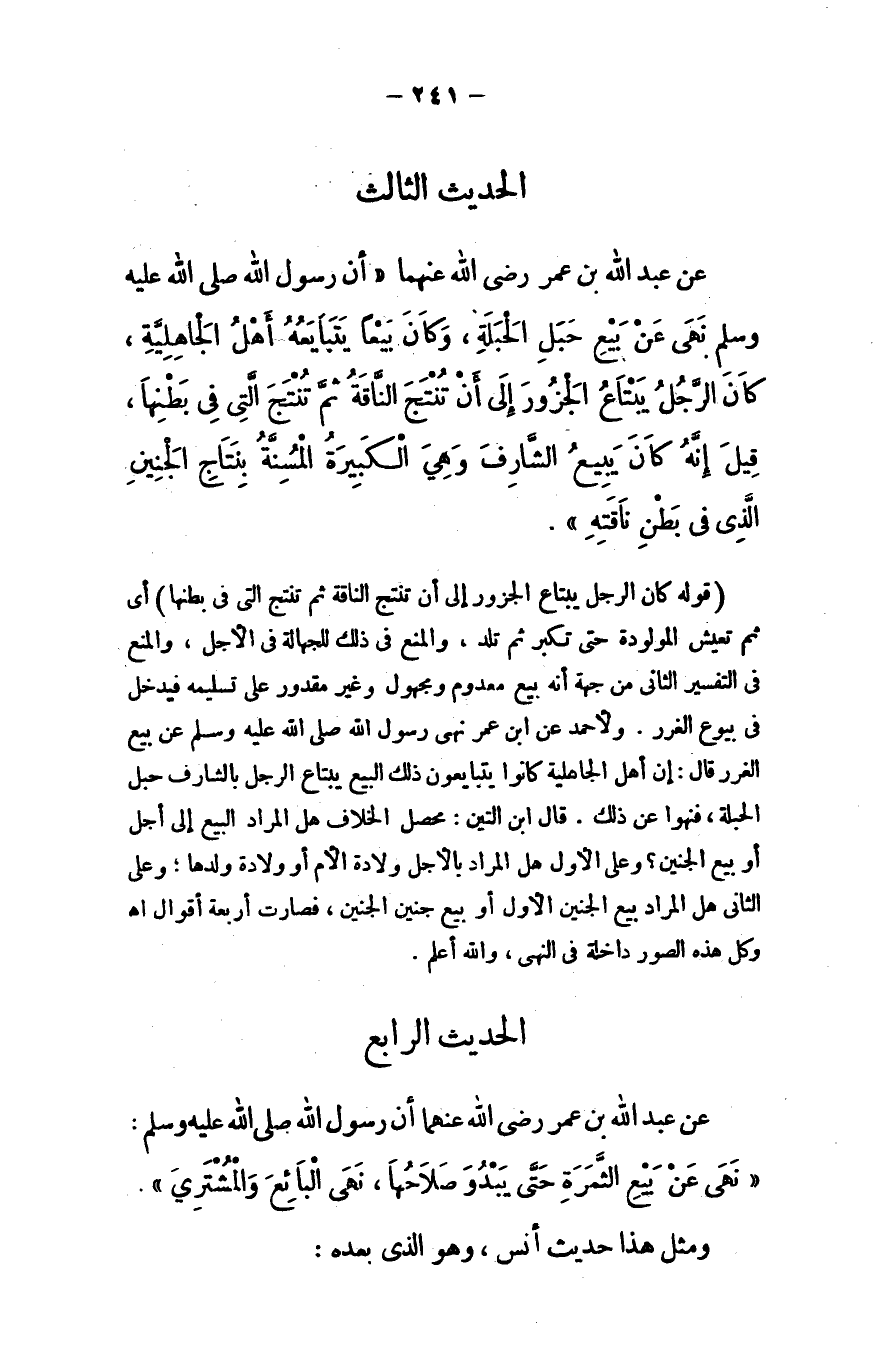 – ٢٤١ –
الحديث الثالث
عن عبد الله بن عمر رضى الله عنهما « أن رسول الله صلى الله عليه
وسلم نَهَى عَنْ بَيْعِ حَبَلِ الْحَبَلَةِ ، وَكَانَ بَيْعاً يَتَبَايَعُهُ أَهْلُ الْجَاهِلِيَّةِ ،
كَانَ الرَّجُلُ يَبْتَاعُ الْجَزُورَ إِلَى أَنْ تُنْتَجَ النَّاقَةُ ثُمَّ تُنْتَجَ الَّتِى فِى بَطْنِهَا ،
قِيلَ إِنَّهُ كَانَ يَبِيعُ الشَّارِفَ وَهِيَ الْكَبِيرَةُ الْمُسِنَّةُ بِنَتَاجِ الْجَنِينِ
الَّذِى فِى بَطْنِ نَاقَتِهِ » .
( قوله كان الرجل يبتاع الجزور إلى أن تنتج الناقة ثم تنتج التى فى بطنها ) أى
ثم تعيش المولودة حتى تكبر ثم تلد ، والمنع فى ذلك للجهالة فى الأجل ، والمنع
فى التفسير الثانى من جهة أنه بيع معدوم ومجهول وغير مقدور على تسليمه فيدخل
فى بيوع الغرر . ولأحمد عن ابن عمر نهى رسول الله صلى الله عليه وسلم عن بيع
الغرر قال : إن أهل الجاهلية كانوا يتبايعون ذلك البيع يبتاع الرجل بالشارف حبل
الحبلة ، فنهوا عن ذلك . قال ابن التين : محصل الخلاف هل المراد البيع إلى أجل
أو بيع الجنين ؟ وعلى الأول هل المراد بالأجل ولادة الأم أو ولادة ولدها ؛ وعلى
الثانى هل المراد بيع الجنين الأول أو بيع جنين الجنين ، فصارت أربعة أقوال اه
وكل هذه الصور داخلة فى النهى ، والله أعلم .
الحديث الرابع
عن عبد الله بن عمر رضى الله عنهما أن رسول الله صلى الله عليه وسلم :
« نَهَى عَنْ بَيْعِ الثَّمَرَةِ حَتَّى يَبْدُوَ صَلَاحُهَا ، نَهَى الْبَائِعَ وَالْمُشْتَرِيَ » .
ومثل هذا حديث أنس ، وهو الذى بعده :